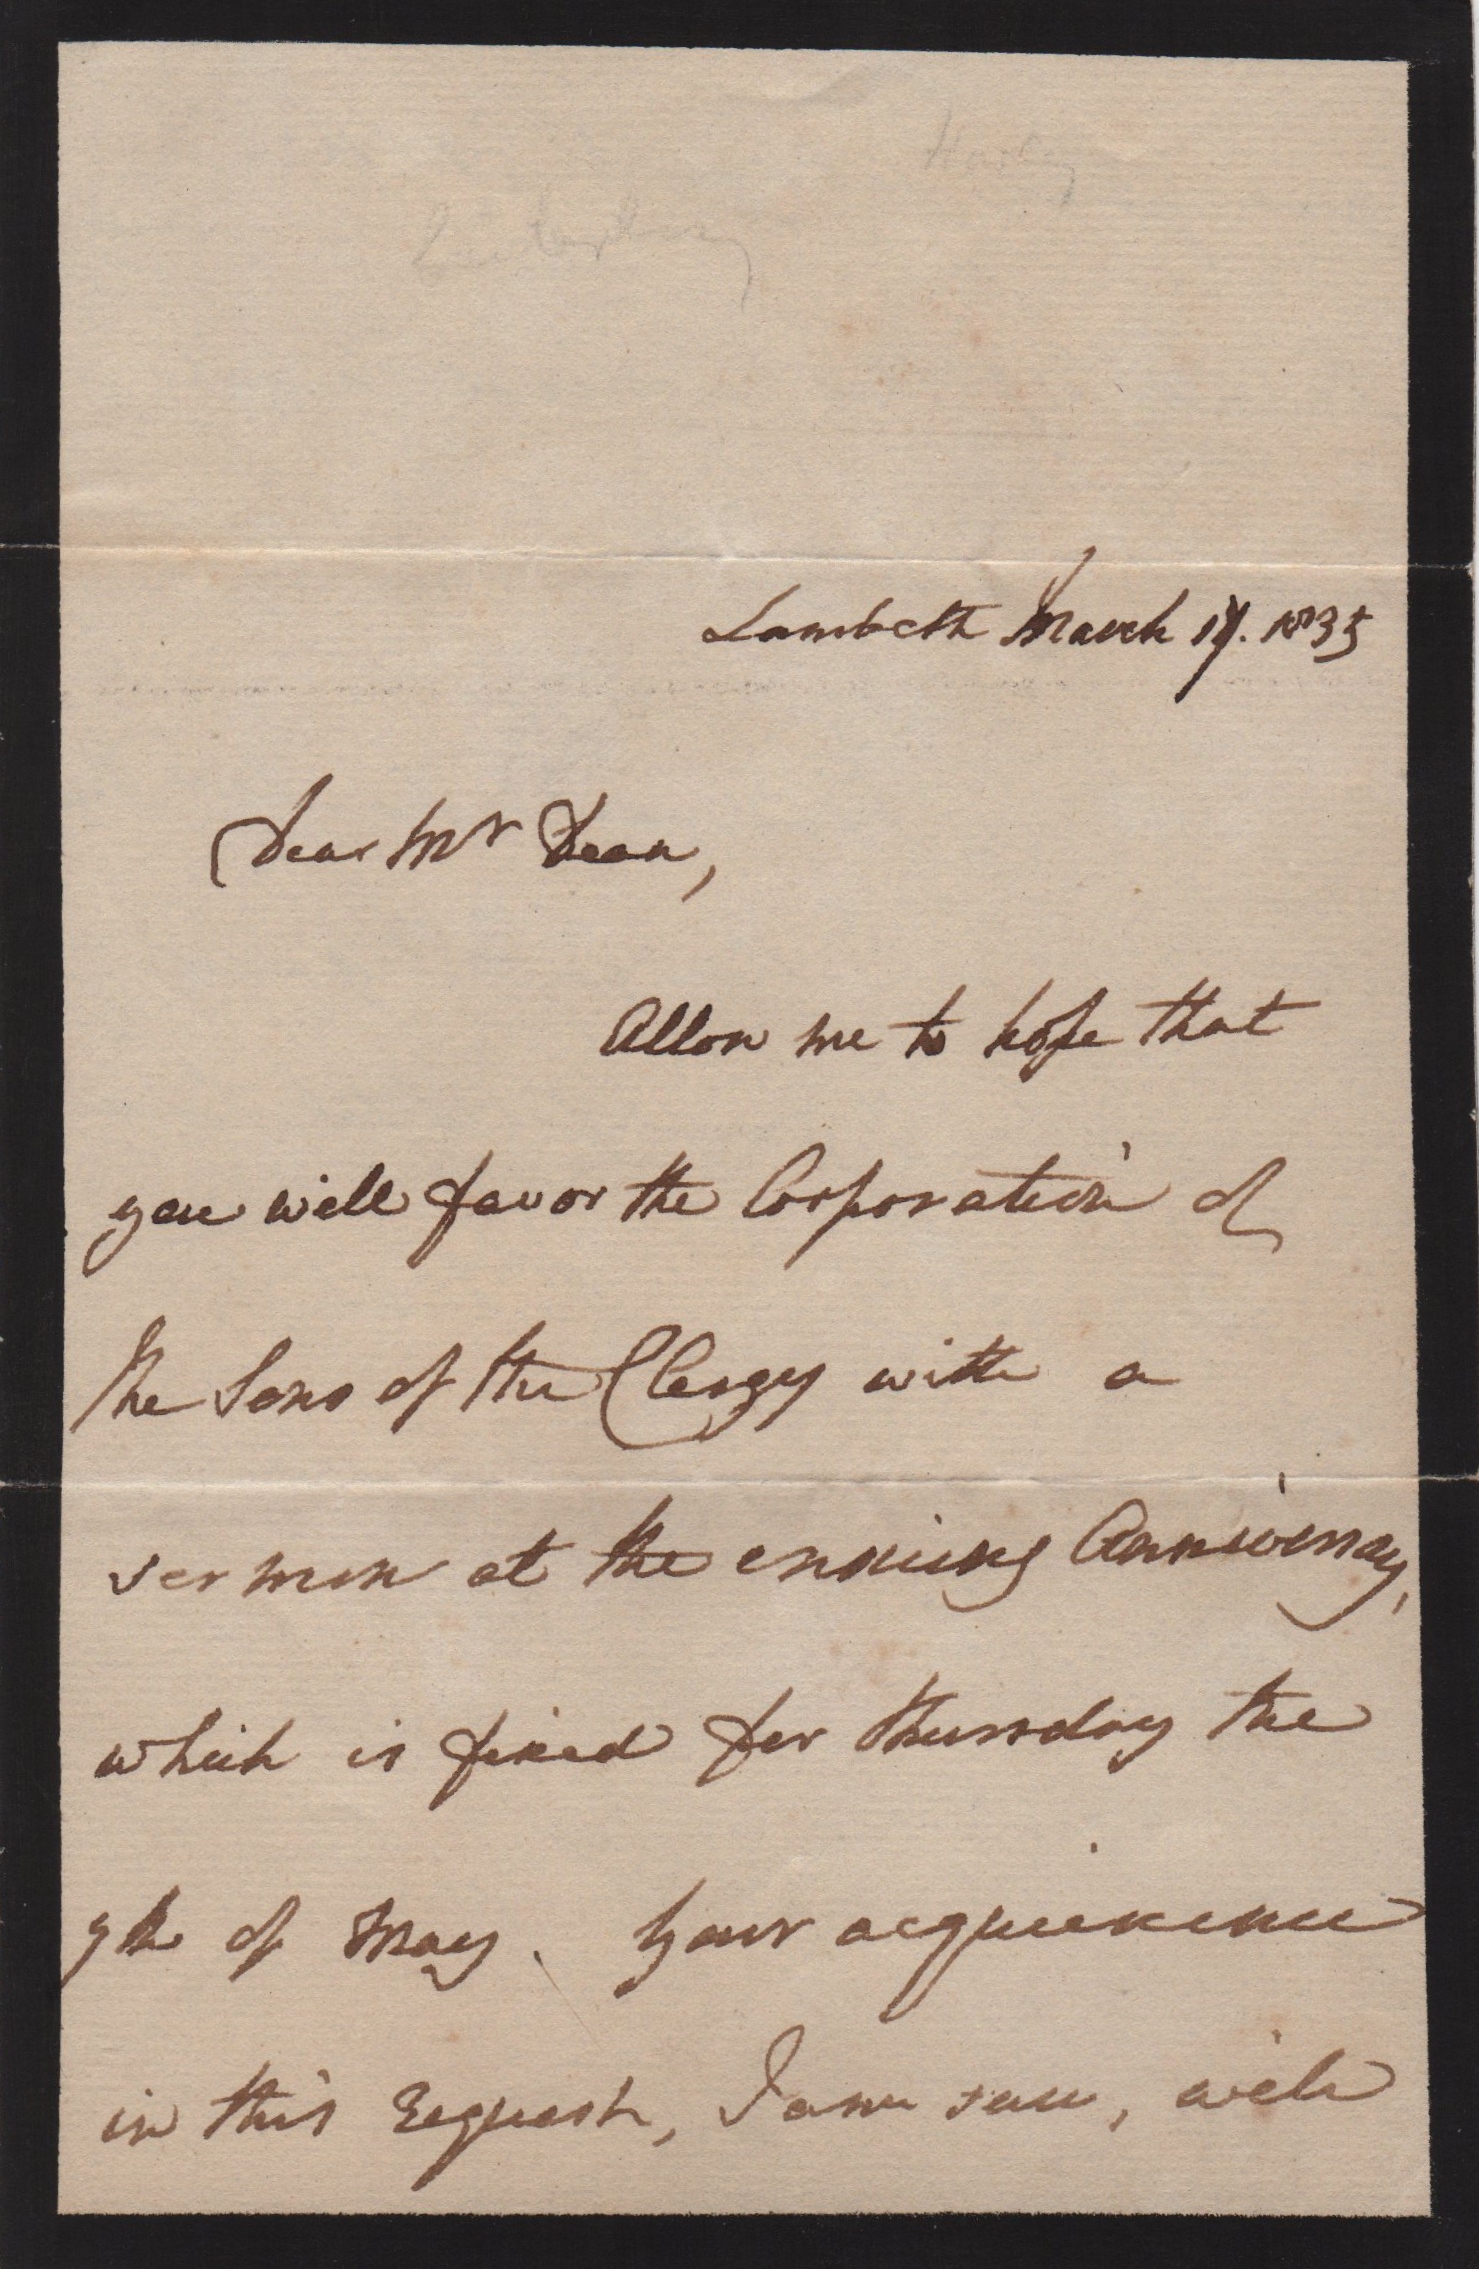 Lambeth March 17. 1835
Dear Mr Dean,
Allow me to hope that
you will favor the Corporation of
the Sons of the Clergy with a
sermon at the ensuing Anniversary,
which is fixed for Thursday the
7th of May. Your acquiescence
in this request, I am sure, will